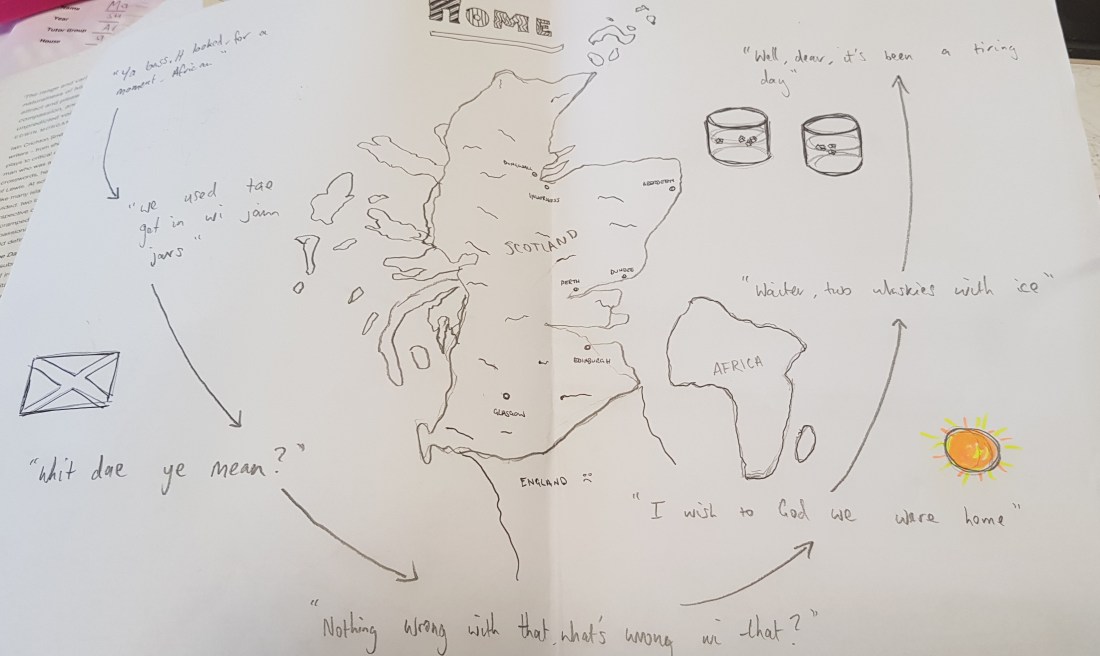 HOME
"Ya bass. It looked, for a
moment. African"
"we used tae
get in wi jam
jars"
"whit dae ye mean?"
"Nothing wrong with that, what's wrong wi that?"
"I wish to God we were home"
"Waiter, two whiskies with ice"
"Well, dear, it's been a tiring
day"
SCOTLAND
DINGWALL
INVERNESS
ABERDEEN
DUNDEE
PERTH
EDINBURGH
GLASGOW
ENGLAND
AFRICA
Name
Year
Tutor Group
House